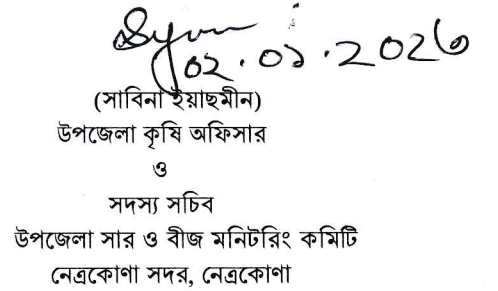 ০২.০১.২০২৬
(সাবিনা ইয়াছমীন)
উপজেলা কৃষি অফিসার
ও
সদস্য সচিব
উপজেলা সার ও বীজ মনিটরিং কমিটি
নেত্রকোণা সদর, নেত্রকোণা